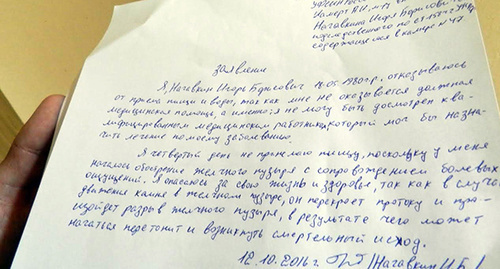 Нагавкина Игоря Борисовича
содержащегося в камере № 47
заявление
Я, Нагавкин Игорь Борисович 17.05.1980 г.р., отказываюсь
от приема пищи и воды, так как мне не оказывается должная
медицинская помощь, а именно: я не могу быть досмотрен ква-
лифицированным медицинским работником, который мог бы назна-
чить лечение по моему заболеванию.
Я четвертый день не принимаю пищу, поскольку у меня
началось обострение желчного пузыря с сопровождением болевых
ощущений. Я опасаюсь за свою жизнь и здоровье, так как в случае
движения камня в желчном пузыре, он перекроет протоку и про-
изойдет разрыв желчного пузыря, в результате чего может
начаться перетонит и возникнуть смертельный исход.
12.10.2016 г. /Нагавкин И.Б./